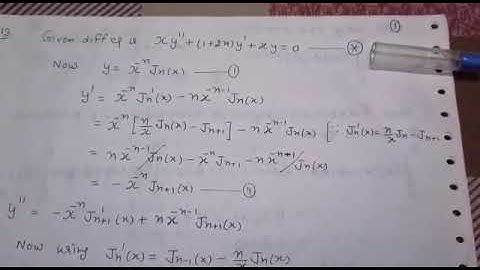 ①
13 Given diff eq is xy'' + (1+2n)y' + xy = 0 —— ⊗
Now y = x⁻ⁿ Jn(x) —— ①
y' = x⁻ⁿ Jn'(x) − n x⁻ⁿ⁻¹ Jn(x)
= x⁻ⁿ [n/x Jn(x) − Jn+1] − n x⁻ⁿ⁻¹ Jn(x) [∵ Jn'(x) = n/x Jn − Jn+1
= n x⁻ⁿ⁻¹ Jn(x) − x⁻ⁿ Jn+1 − n x⁻ⁿ⁻¹ Jn(x)
= − x⁻ⁿ Jn+1(x) —— ⑪
y'' = − x⁻ⁿ J'n+1(x) + n x⁻ⁿ⁻¹ Jn+1(x)
Now using Jn'(x) = Jn−1(x) − n/x Jn(x)